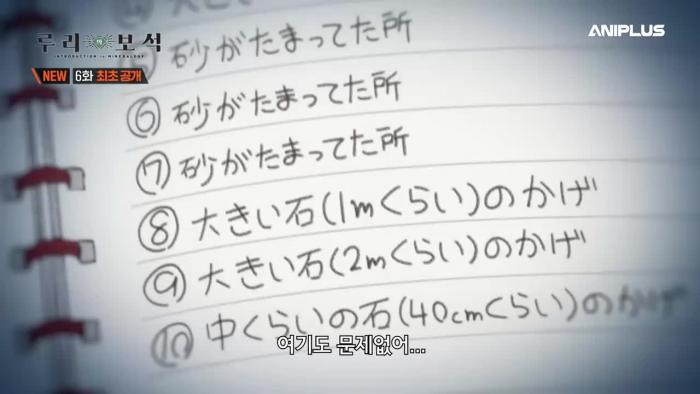 ④ 大きい
루리의 보석
INTRODUCTION to MINERALOGY
ANIPLUS
NEW 6화 최초 공개
砂がたまってた所
⑥ 砂がたまってた所
⑦ 砂がたまってた所
⑧ 大きい石(1mくらい)のかげ
⑨ 大きい石(2mくらい)のかげ
⑩ 中くらいの石(40cmくらい)のかげ
여기도 문제없어...